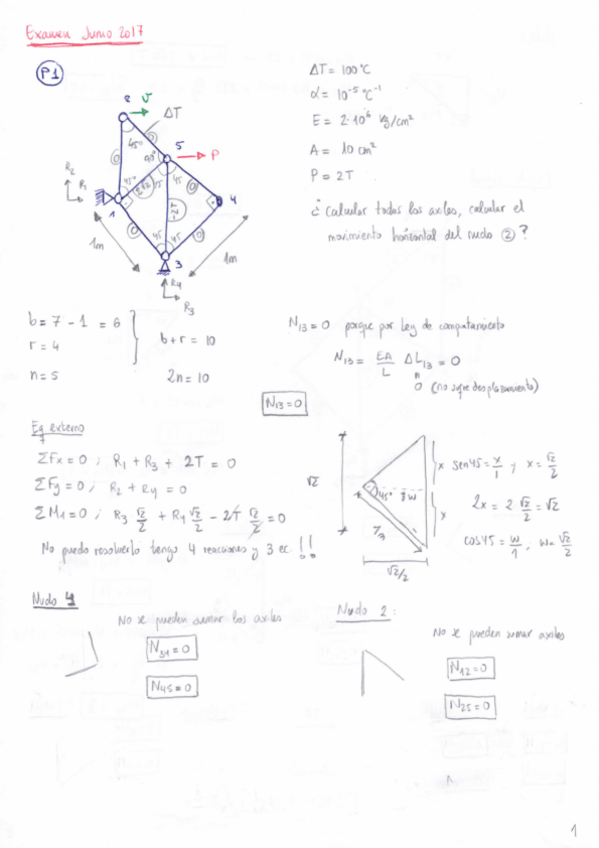 Examen Junio 2017
P1
2
v
ΔT
45º
0
0
90º
5
P
R2
R1
45º
45
45
0
4
1
0
0
1m
45
45
3
1m
R4
R3
ΔT = 100ºC
α = 10⁻⁵ ºC⁻¹
E = 2·10⁶ kg/cm²
A = 10 cm²
P = 2T
¿Calcular todos los axiles, calcular el
movimiento horizontal del nudo ②?
b = 7 - 1 = 6
r = 4
b + r = 10
n = 5
2n = 10
N13 = 0 porque por Ley de comportamiento
N13 = EA/L ΔL13 = 0
0 (no sufre desplazamiento)
N13 = 0
Eq externo
ΣFx = 0; R1 + R3 + 2T = 0
ΣFy = 0; R2 + R4 = 0
ΣM1 = 0; R3 √2/2 + R4 √2/2 - 2T √2/2 = 0
No puedo resolverlo tengo 4 reacciones y 3 ec. !!
√2
45º
w
x
x
√2/2
sen45 = x/1 y x = √2/2
2x = 2 √2/2 = √2
cos45 = w/1, w = √2/2
Nudo 4
No se pueden sumar los axiles
N34 = 0
N45 = 0
Nudo 2:
No se pueden sumar axiles
N12 = 0
N25 = 0
1